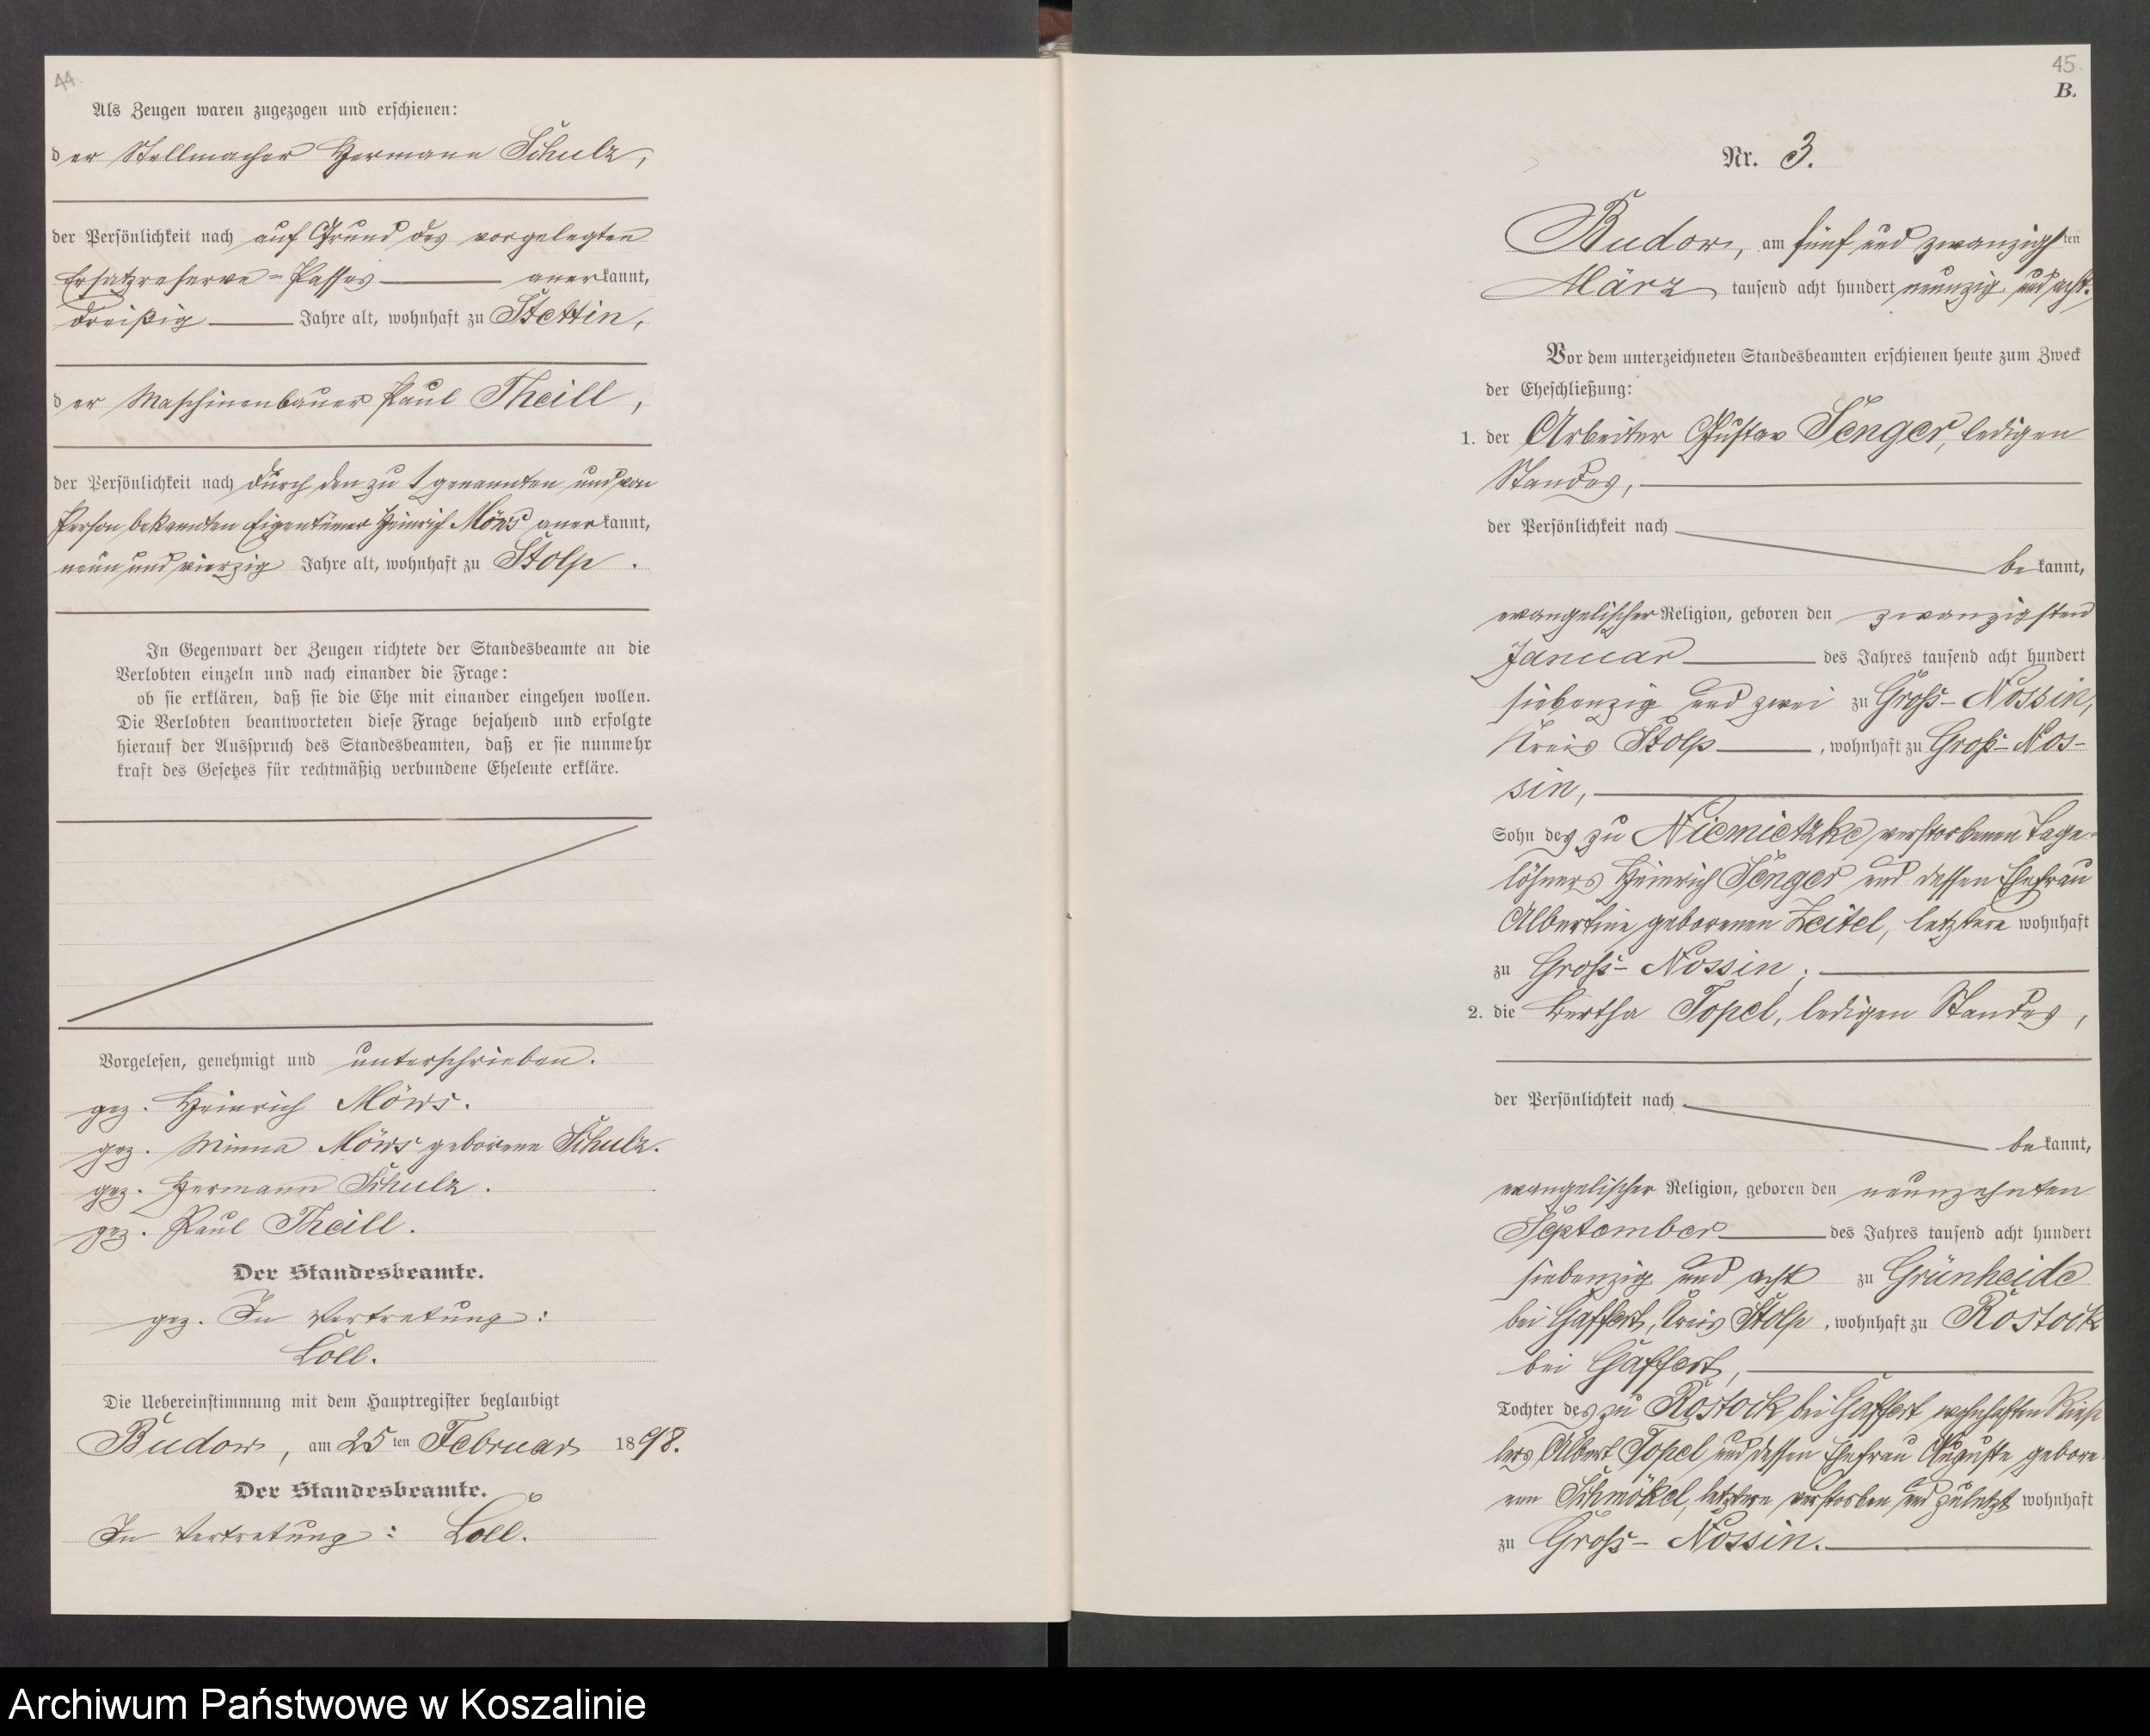 44
Als Zeugen waren zugezogen und erschienen:
der Stellmacher Hermann Schulz,
der Persönlichkeit nach auf Grund des vorgelegten
Ersatzreserve-Passes anerkannt,
dreißig Jahre alt, wohnhaft zu Stettin,
der Maschinenbauer Paul Theill,
der Persönlichkeit nach durch den zu 1 genannten und von
Person bekannten Eigentümer Heinrich Möws anerkannt,
neun und vierzig Jahre alt, wohnhaft zu Stolp.
In Gegenwart der Zeugen richtete der Standesbeamte an die
Verlobten einzeln und nach einander die Frage:
ob sie erklären, daß sie die Ehe mit einander eingehen wollen.
Die Verlobten beantworteten diese Frage bejahend und erfolgte
hierauf der Ausspruch des Standesbeamten, daß er sie nunmehr
kraft des Gesetzes für rechtmäßig verbundene Eheleute erkläre.
Vorgelesen, genehmigt und unterschrieben.
gez. Heinrich Möws.
gez. Minna Möws geborene Schulz.
gez. Hermann Schulz.
gez. Paul Theill.
Der Standesbeamte.
gez. In Vertretung:
Loll.
Die Uebereinstimmung mit dem Hauptregister beglaubigt
Budow, am 25ten Februar 1898.
Der Standesbeamte.
In Vertretung: Loll.
45
B.
Nr. 3.
Budow, am fünf und zwanzigsten
März tausend acht hundert neunzig und acht.
Vor dem unterzeichneten Standesbeamten erschienen heute zum Zweck
der Eheschließung:
1. der Arbeiter Gustav Senger, ledigen
Standes,
der Persönlichkeit nach
bekannt,
evangelischer Religion, geboren den zwanzigsten
Januar des Jahres tausend acht hundert
siebenzig und zwei zu Groß-Nossin,
Kreis Stolp, wohnhaft zu Groß-Nos-
sin,
Sohn des zu Niemietzke verstorbenen Tage-
löhners Heinrich Senger und dessen Ehefrau
Albertine geborenen Zeitel, letztere wohnhaft
zu Groß-Nossin;
2. die Bertha Topel, ledigen Standes,
der Persönlichkeit nach
bekannt,
evangelischer Religion, geboren den neunzehnten
September des Jahres tausend acht hundert
siebenzig und acht zu Grünheide
bei Gaffert, Kreis Stolp, wohnhaft zu Rostock
bei Gaffert,
Tochter des zu Rostock bei Gaffert wohnhaften
Albert Topel und dessen Ehefrau Auguste gebore-
nen Schmökel, letztere verstorben und zuletzt wohnhaft
zu Groß-Nossin.
Archiwum Państwowe w Koszalinie